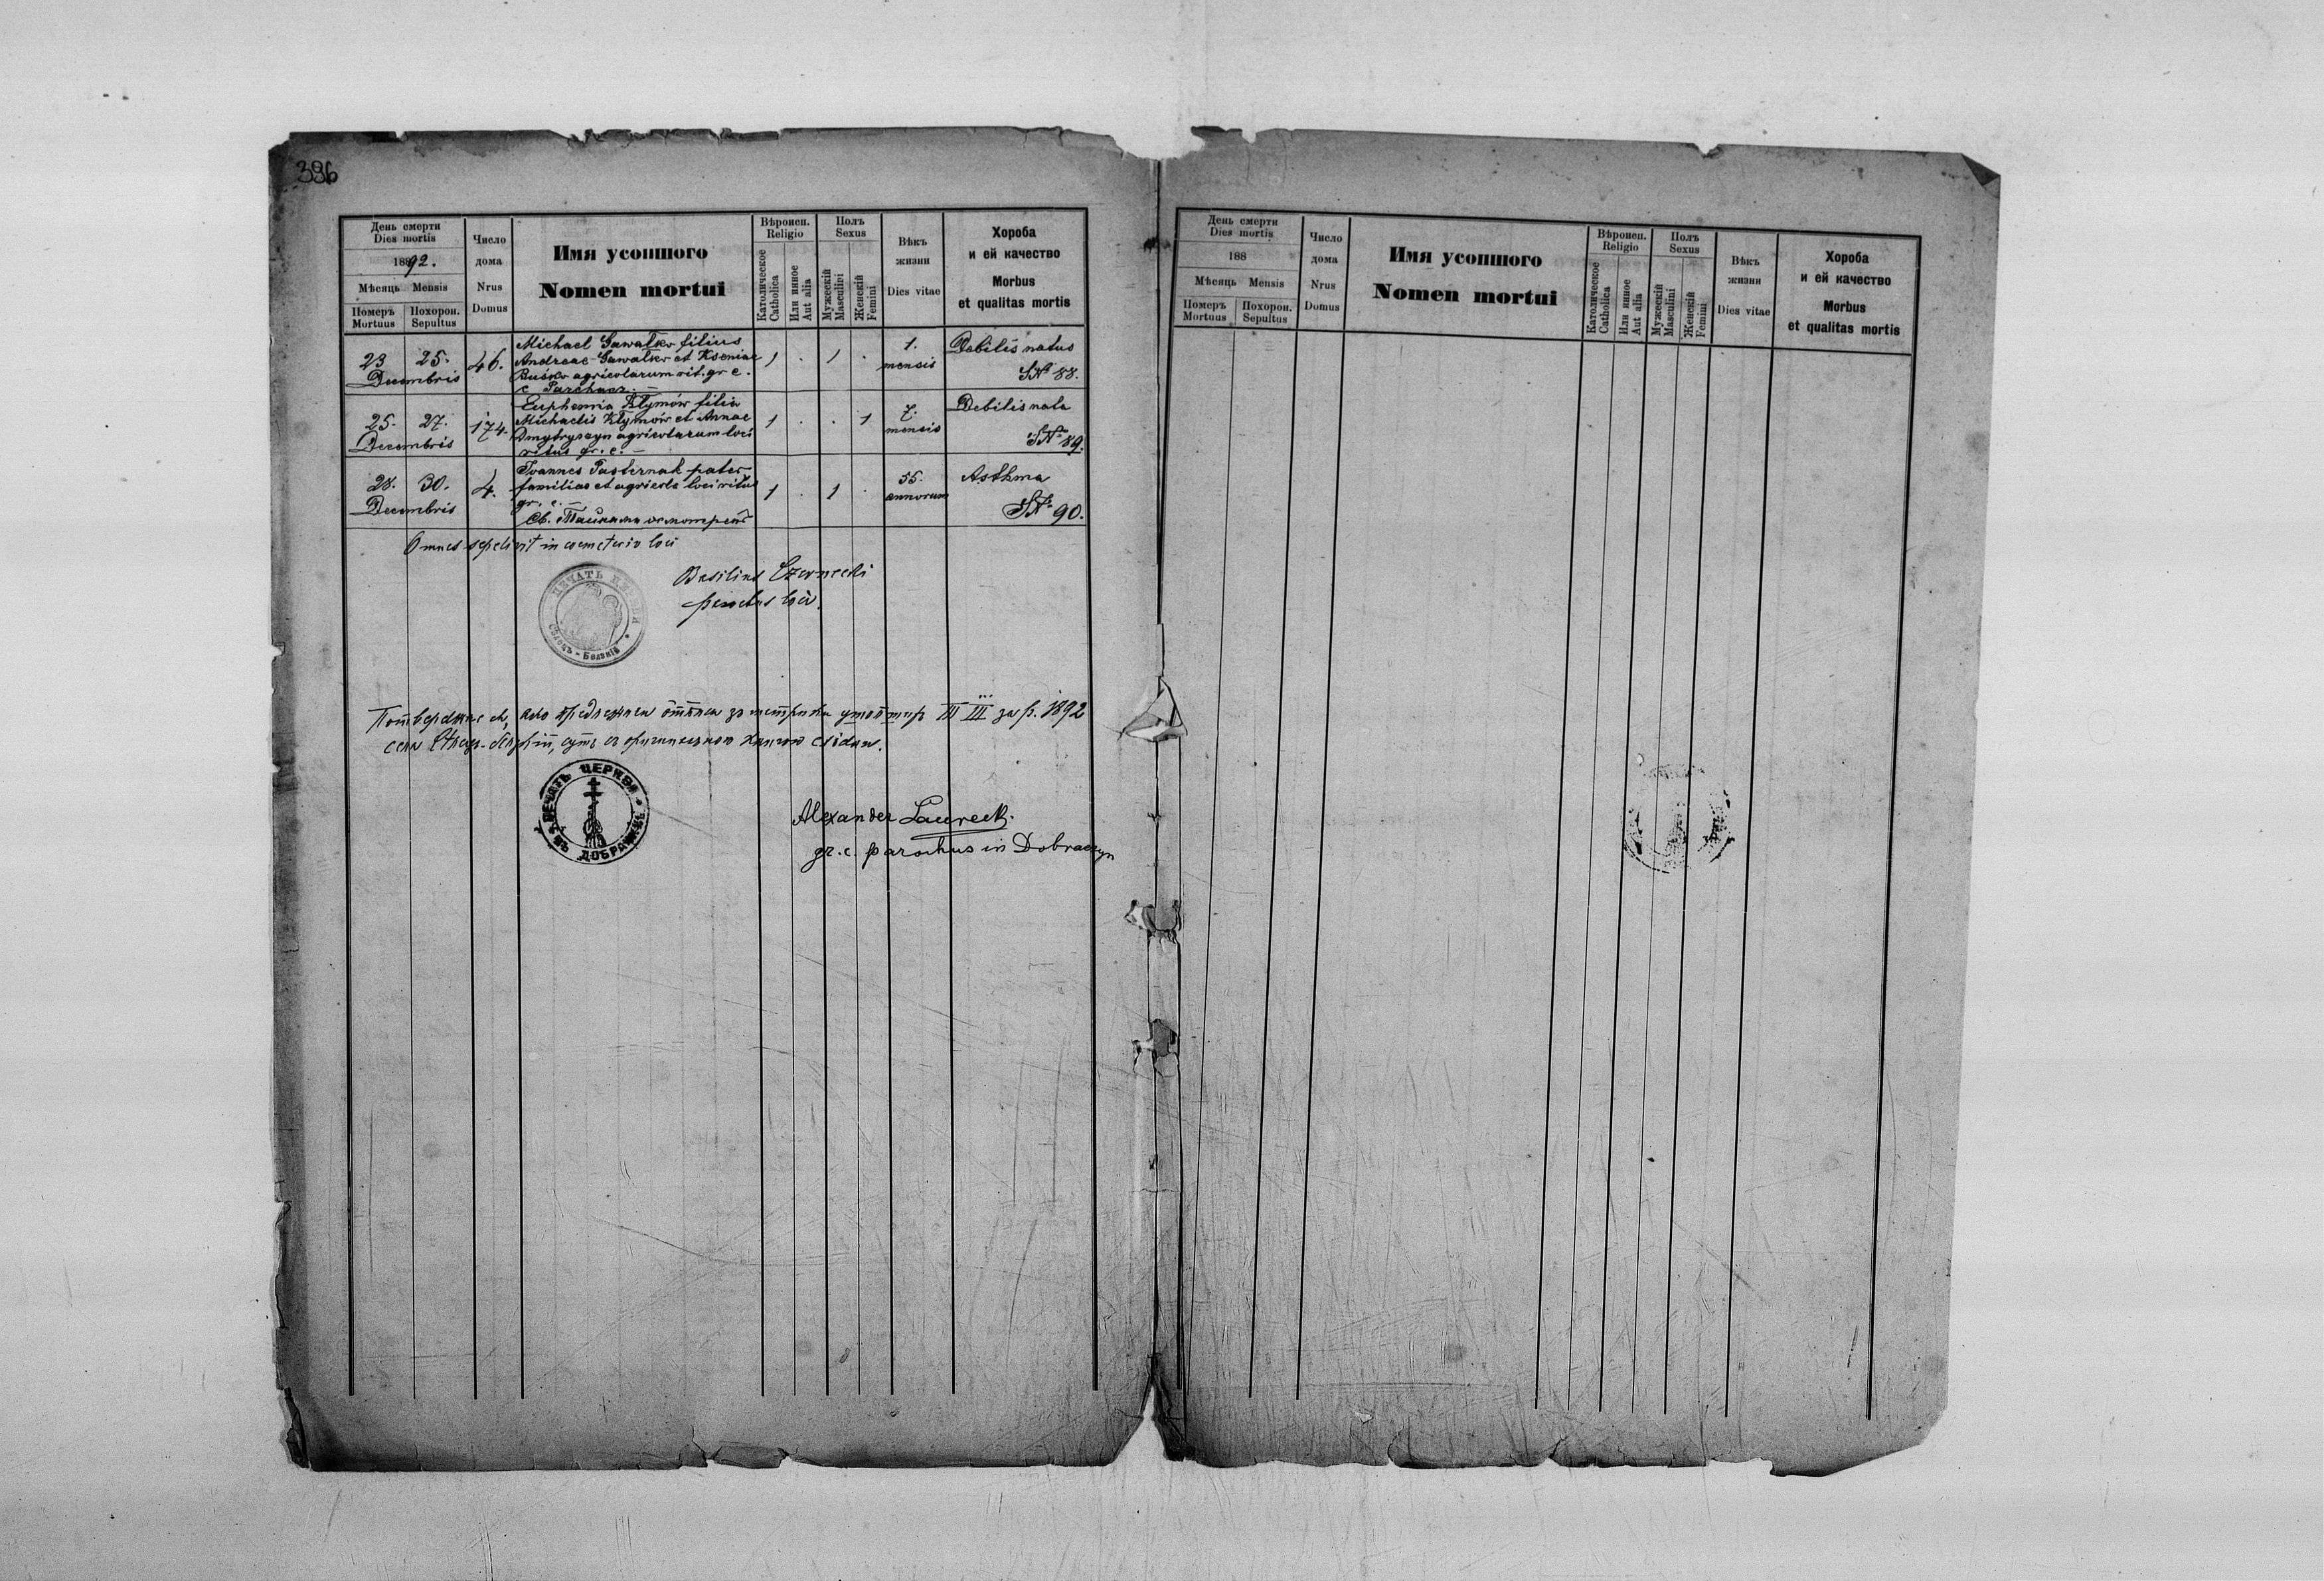 396
День смерти
Dies mortis
1892.
Мѣсяць Mensis
Померъ
Mortuus
Похорон.
Sepultus
Число
дома
Nrus
Domus
Имя усопшого
Nomen mortui
Вѣроисп.
Religio
Католическое
Catholica
Или инное
Aut alia
Полъ
Sexus
Мужескій
Masculini
Женскій
Femini
Вѣкъ
жизни
Dies vitae
Хороба
и ей качество
Morbus
et qualitas mortis
23 25.
Decembris
46.
Michael Gawalko filius
Andreae Gawalko et Kseniae
Busko agricolarum rit. gr. c.
e Parchacz.
1 . 1 .
1.
mensis
Debilis natus
S№ 88.
25. 27.
Decembris
174.
Euphemia Kłymów filia
Michaelis Kłymów et Annae
Dmytryszyn agricolarum loci
ritus gr. c.
1 . . 1
7.
mensis
Debilis nata
S№ 89.
28. 30.
Decembris
4.
Joannes Pasternak pater
familias et agricola loci ritus
gr. c.
Св. Тайнами осмотренъ
1 . 1 .
55.
annorum
Asthma
S№ 90.
Omnes sepelivit in coemeterio loci
Basilius Czernecki
parochus loci.
ПЕЧАТЬ
Бѣлзкій
за р. 1892
села
Alexander Laureck.
gr. c. parochus in Dobraczyn
ПЕЧАТЬ ЦЕРКВИ
ВЪ ДОБРА
День смерти
Dies mortis
188
Мѣсяць Mensis
Померъ
Mortuus
Похорон.
Sepultus
Число
дома
Nrus
Domus
Имя усопшого
Nomen mortui
Вѣроисп.
Religio
Католическое
Catholica
Или инное
Aut alia
Полъ
Sexus
Мужескій
Masculini
Женскій
Femini
Вѣкъ
жизни
Dies vitae
Хороба
и ей качество
Morbus
et qualitas mortis